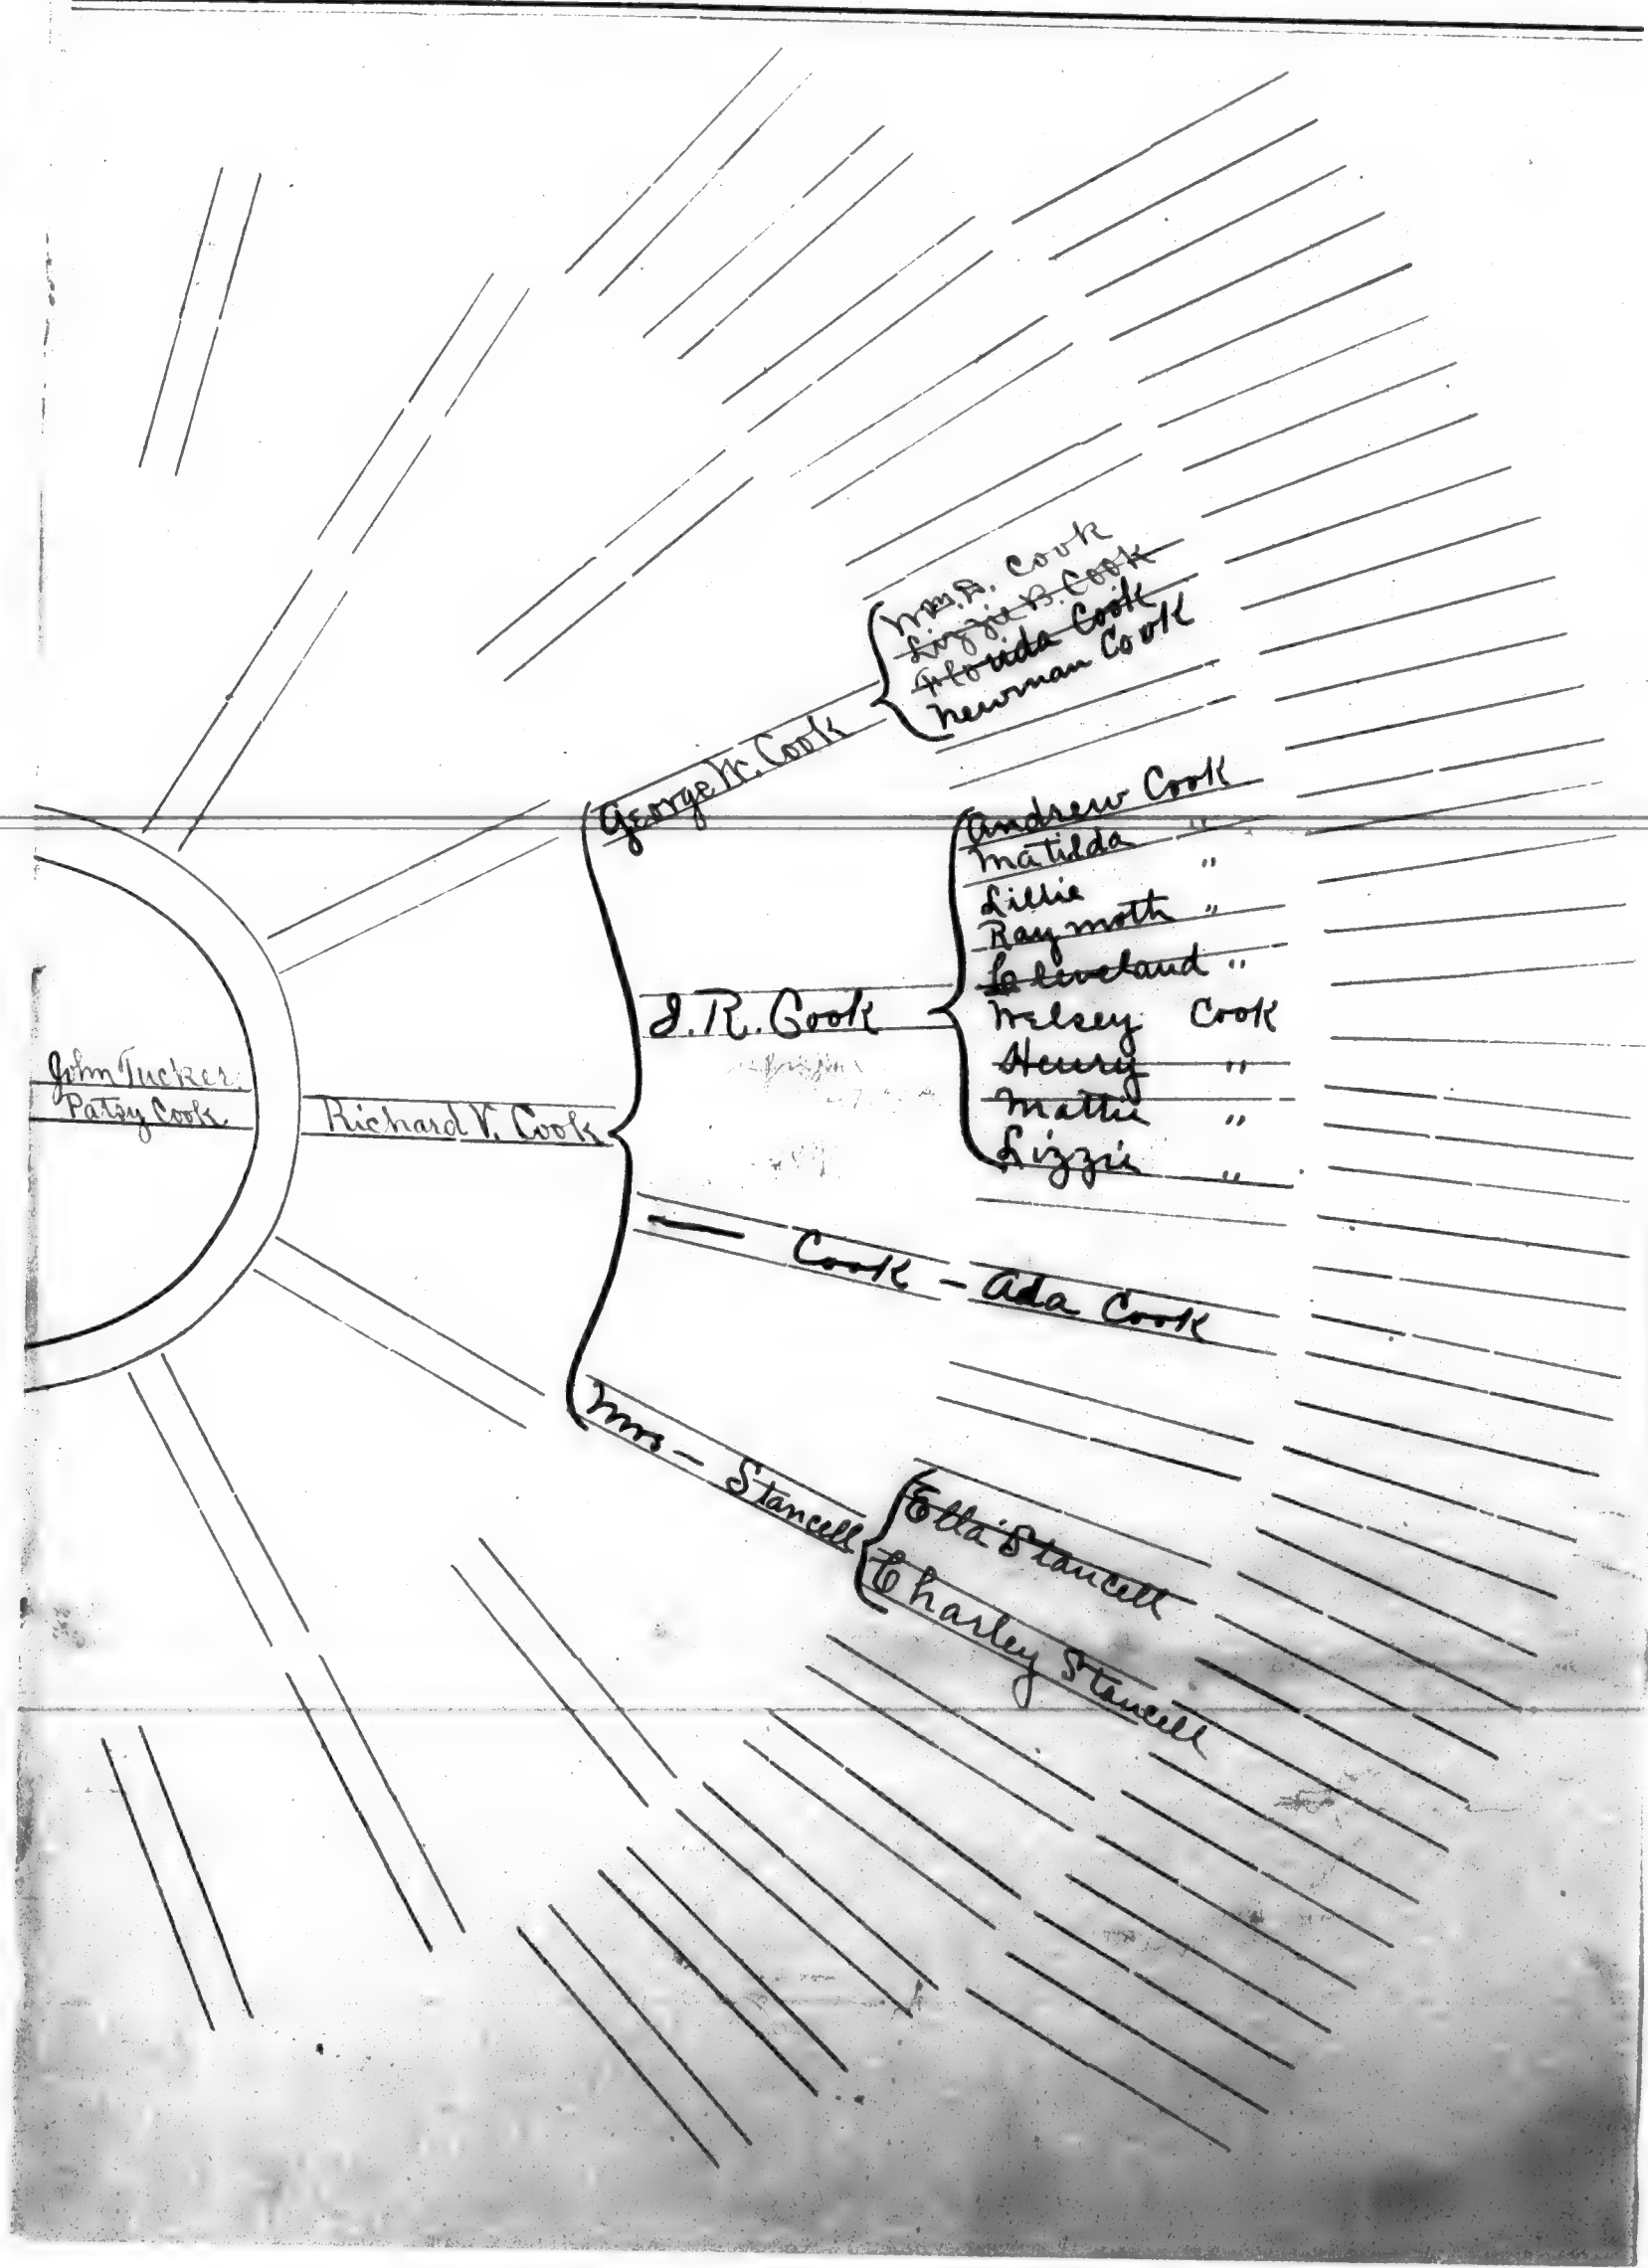 John Tucker.
Patsy Cook
Richard V. Cook
George W. Cook
Wm. D. Cook
Lizzie B. Cook
Florida Cook
Newman Cook
J. R. Cook
Andrew Cook
Matilda "
Lillie "
Raymoth "
Cleveland "
Welsey Cook
Henry "
Mattie "
Lizzie "
— Cook – Ada Cook
Mrs – Stancell
Etta Stancell
Charley Stancell